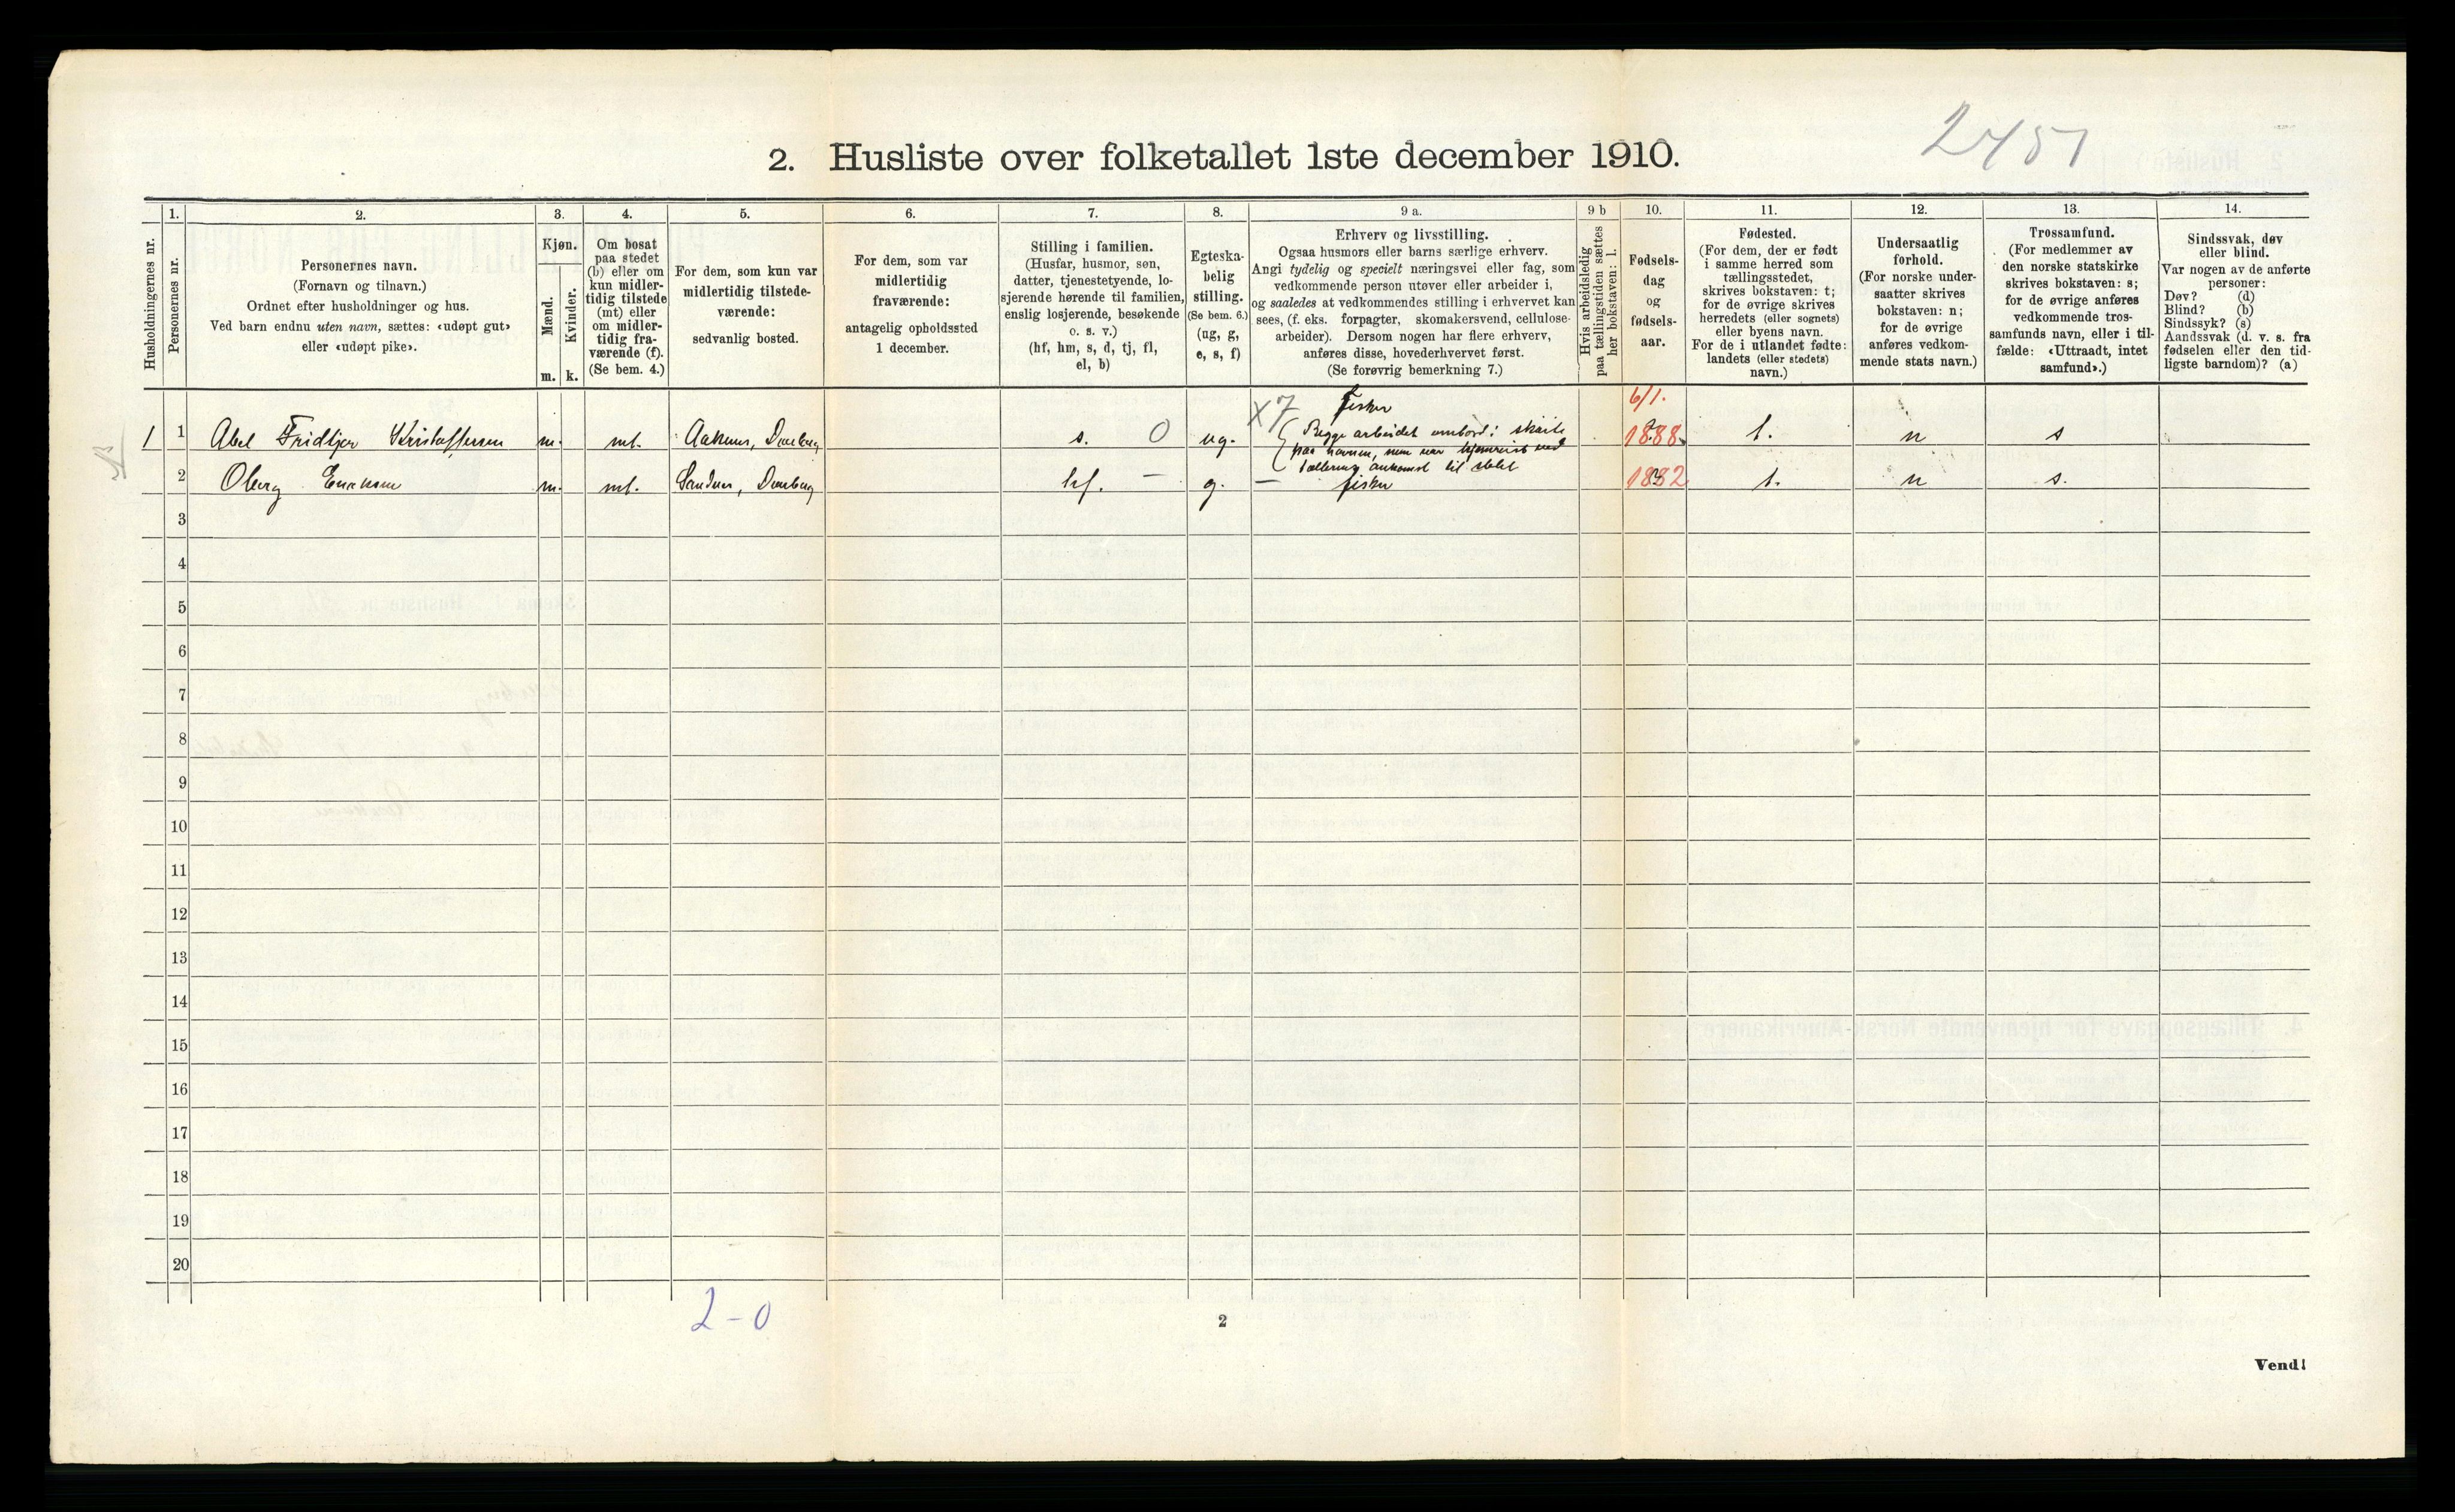 2451
2. Husliste over folketallet 1ste december 1910.
Husholdningernes nr.
1.
Personernes nr.
2.
Personernes navn.
(Fornavn og tilnavn.)
Ordnet efter husholdninger og hus.
Ved barn endnu uten navn, sættes: «udøpt gut»
eller «udøpt pike».
3.
Kjøn.
Mænd.
Kvinder.
m.
k.
4.
Om bosat
paa stedet
(b) eller om
kun midler-
tidig tilstede
(mt) eller
om midler-
tidig fra-
værende (f).
(Se bem. 4.)
5.
For dem, som kun var
midlertidig tilstede-
værende:
sedvanlig bosted.
6.
For dem, som var
midlertidig
fraværende:
antagelig opholdssted
1 december.
7.
Stilling i familien.
(Husfar, husmor, søn,
datter, tjenestetyende, lo-
sjerende hørende til familien,
enslig losjerende, besøkende
o. s. v.)
(hf, hm, s, d, tj, fl,
el, b)
8.
Egteska-
belig
stilling.
(Se bem. 6.)
(ug, g,
e, s, f)
9 a.
Erhverv og livsstilling.
Ogsaa husmors eller barns særlige erhverv.
Angi tydelig og specielt næringsvei eller fag, som
vedkommende person utøver eller arbeider i,
og saaledes at vedkommendes stilling i erhvervet kan
sees, (f. eks. forpagter, skomakersvend, cellulose-
arbeider). Dersom nogen har flere erhverv,
anføres disse, hovederhvervet først.
(Se forøvrig bemerkning 7.)
9 b
Hvis arbeidsledig
paa tællingstiden sættes
her bokstaven: l.
10.
Fødsels-
dag
og
fødsels-
aar.
11.
Fødested.
(For dem, der er født
i samme herred som
tællingsstedet,
skrives bokstaven: t;
for de øvrige skrives
herredets (eller sognets)
eller byens navn.
For de i utlandet fødte:
landets (eller stedets)
navn.)
12.
Undersaatlig
forhold.
(For norske under-
saatter skrives
bokstaven: n;
for de øvrige
anføres vedkom-
mende stats navn.)
13.
Trossamfund.
(For medlemmer av
den norske statskirke
skrives bokstaven: s;
for de øvrige anføres
vedkommende tros-
samfunds navn, eller i til-
fælde: «Uttraadt, intet
samfund».)
14.
Sindssvak, døv
eller blind.
Var nogen av de anførte
personer:
Døv? (d)
Blind? (b)
Sindssyk? (s)
Aandssvak (d. v. s. fra
fødselen eller den tid-
ligste barndom)? (a)
X7 Fisker 6/1.
1 1 Abel Fridtjor Kristoffersen m. mt. s. 0 ug. Begge arbeidet ombord i skøite 1888 t. n s
paa havnen, som var hjemreist ved
tællerens ankomst til stedet
2 Oberg Eriksen m. mt. hf. — g. — fisker 1882 t. n s.
3
4
5
6
7
8
9
10
11
12
13
14
15
16
17
18
19
20
2-0
2
Vend!